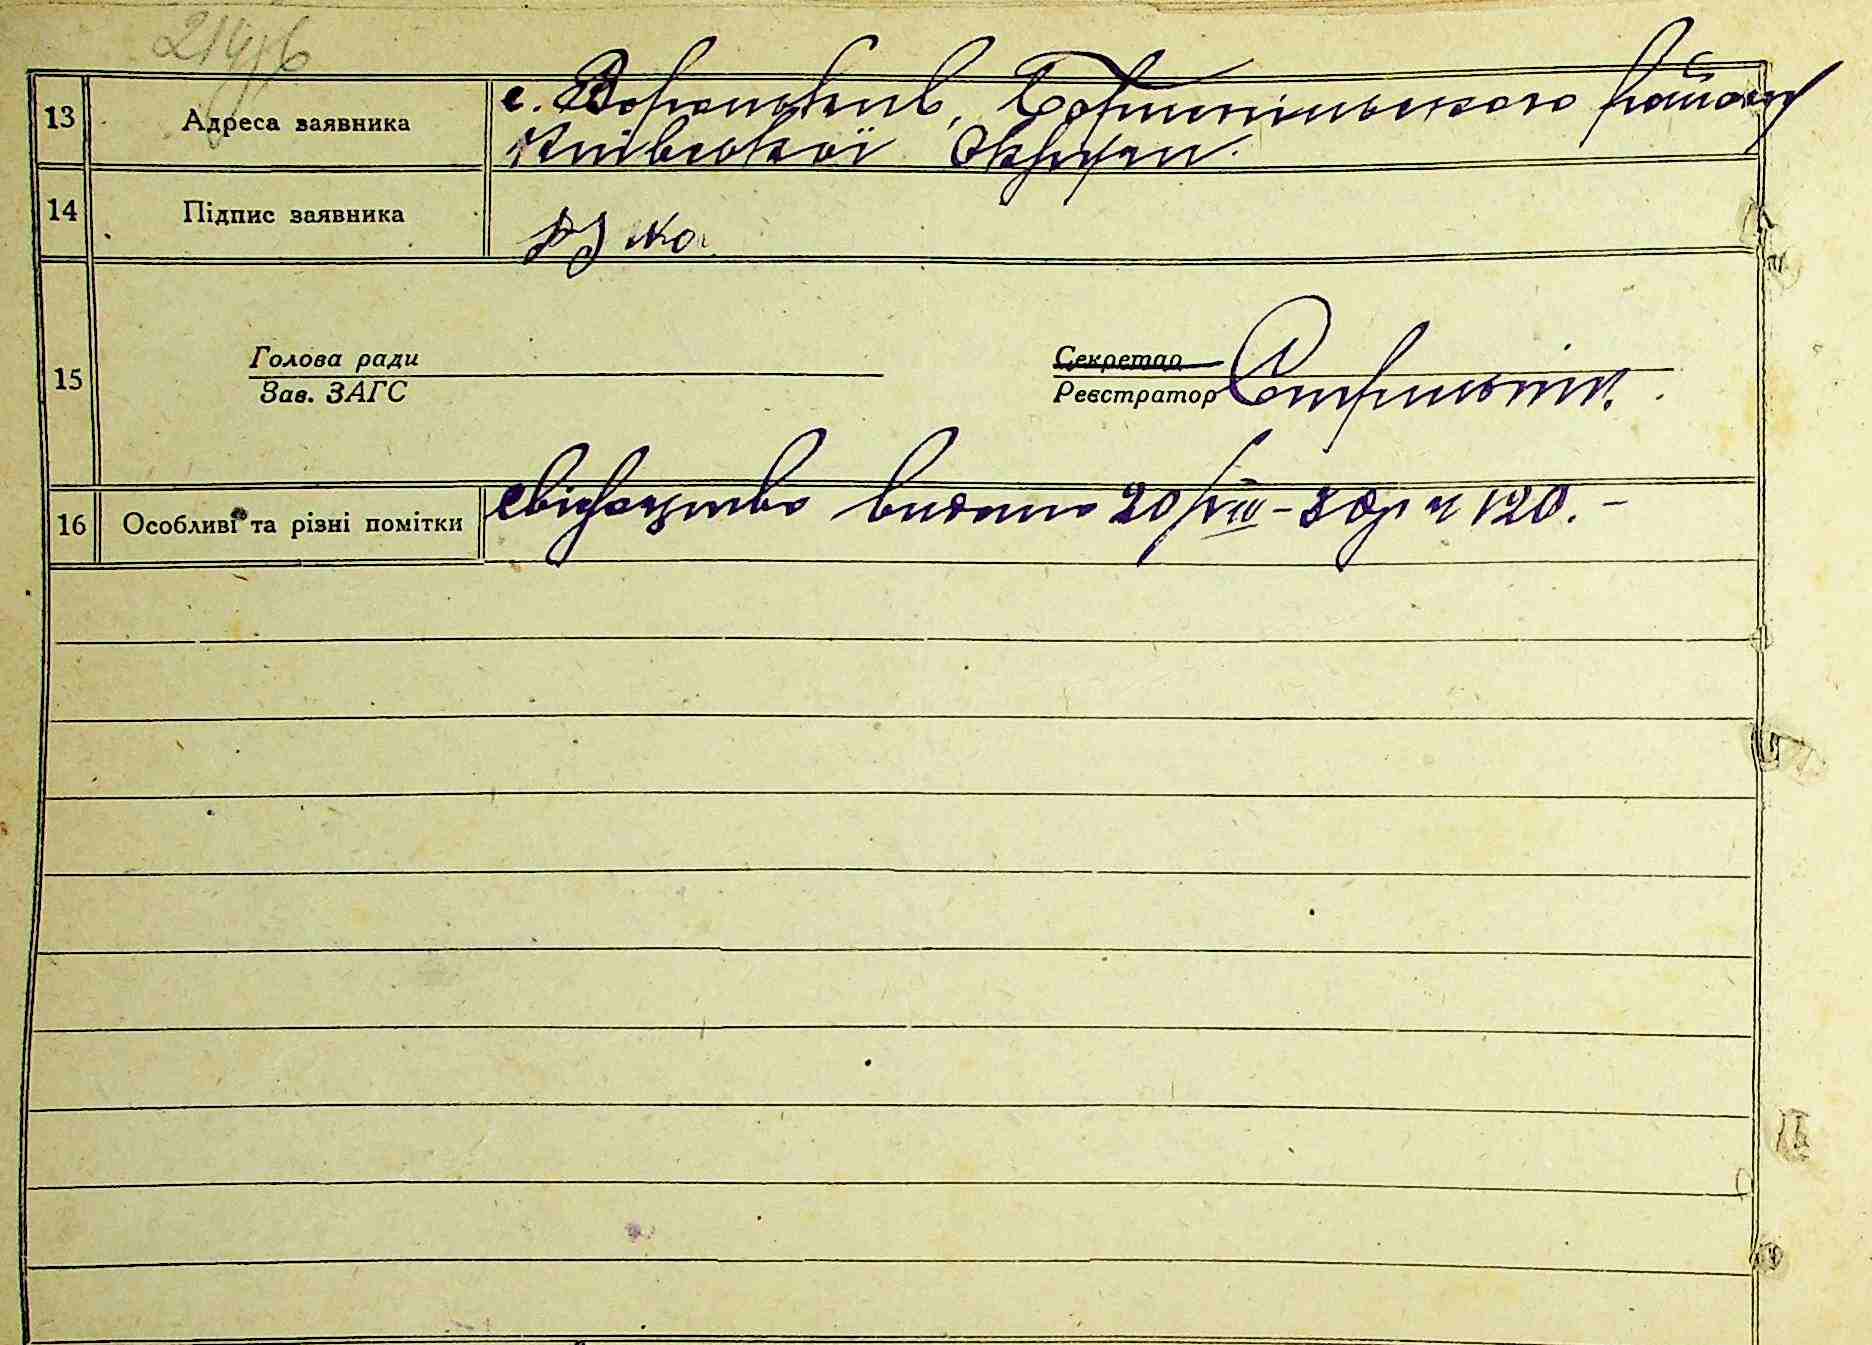 13 Адреса заявника с. Вороньків, Бориспільського району
Київської Округи.
14 Підпис заявника
15 Голова ради Секретар
Зав. ЗАГС Реєстратор
16 Особливі та різні помітки свідоцтво видано 20/VIII-30р ч 120. -